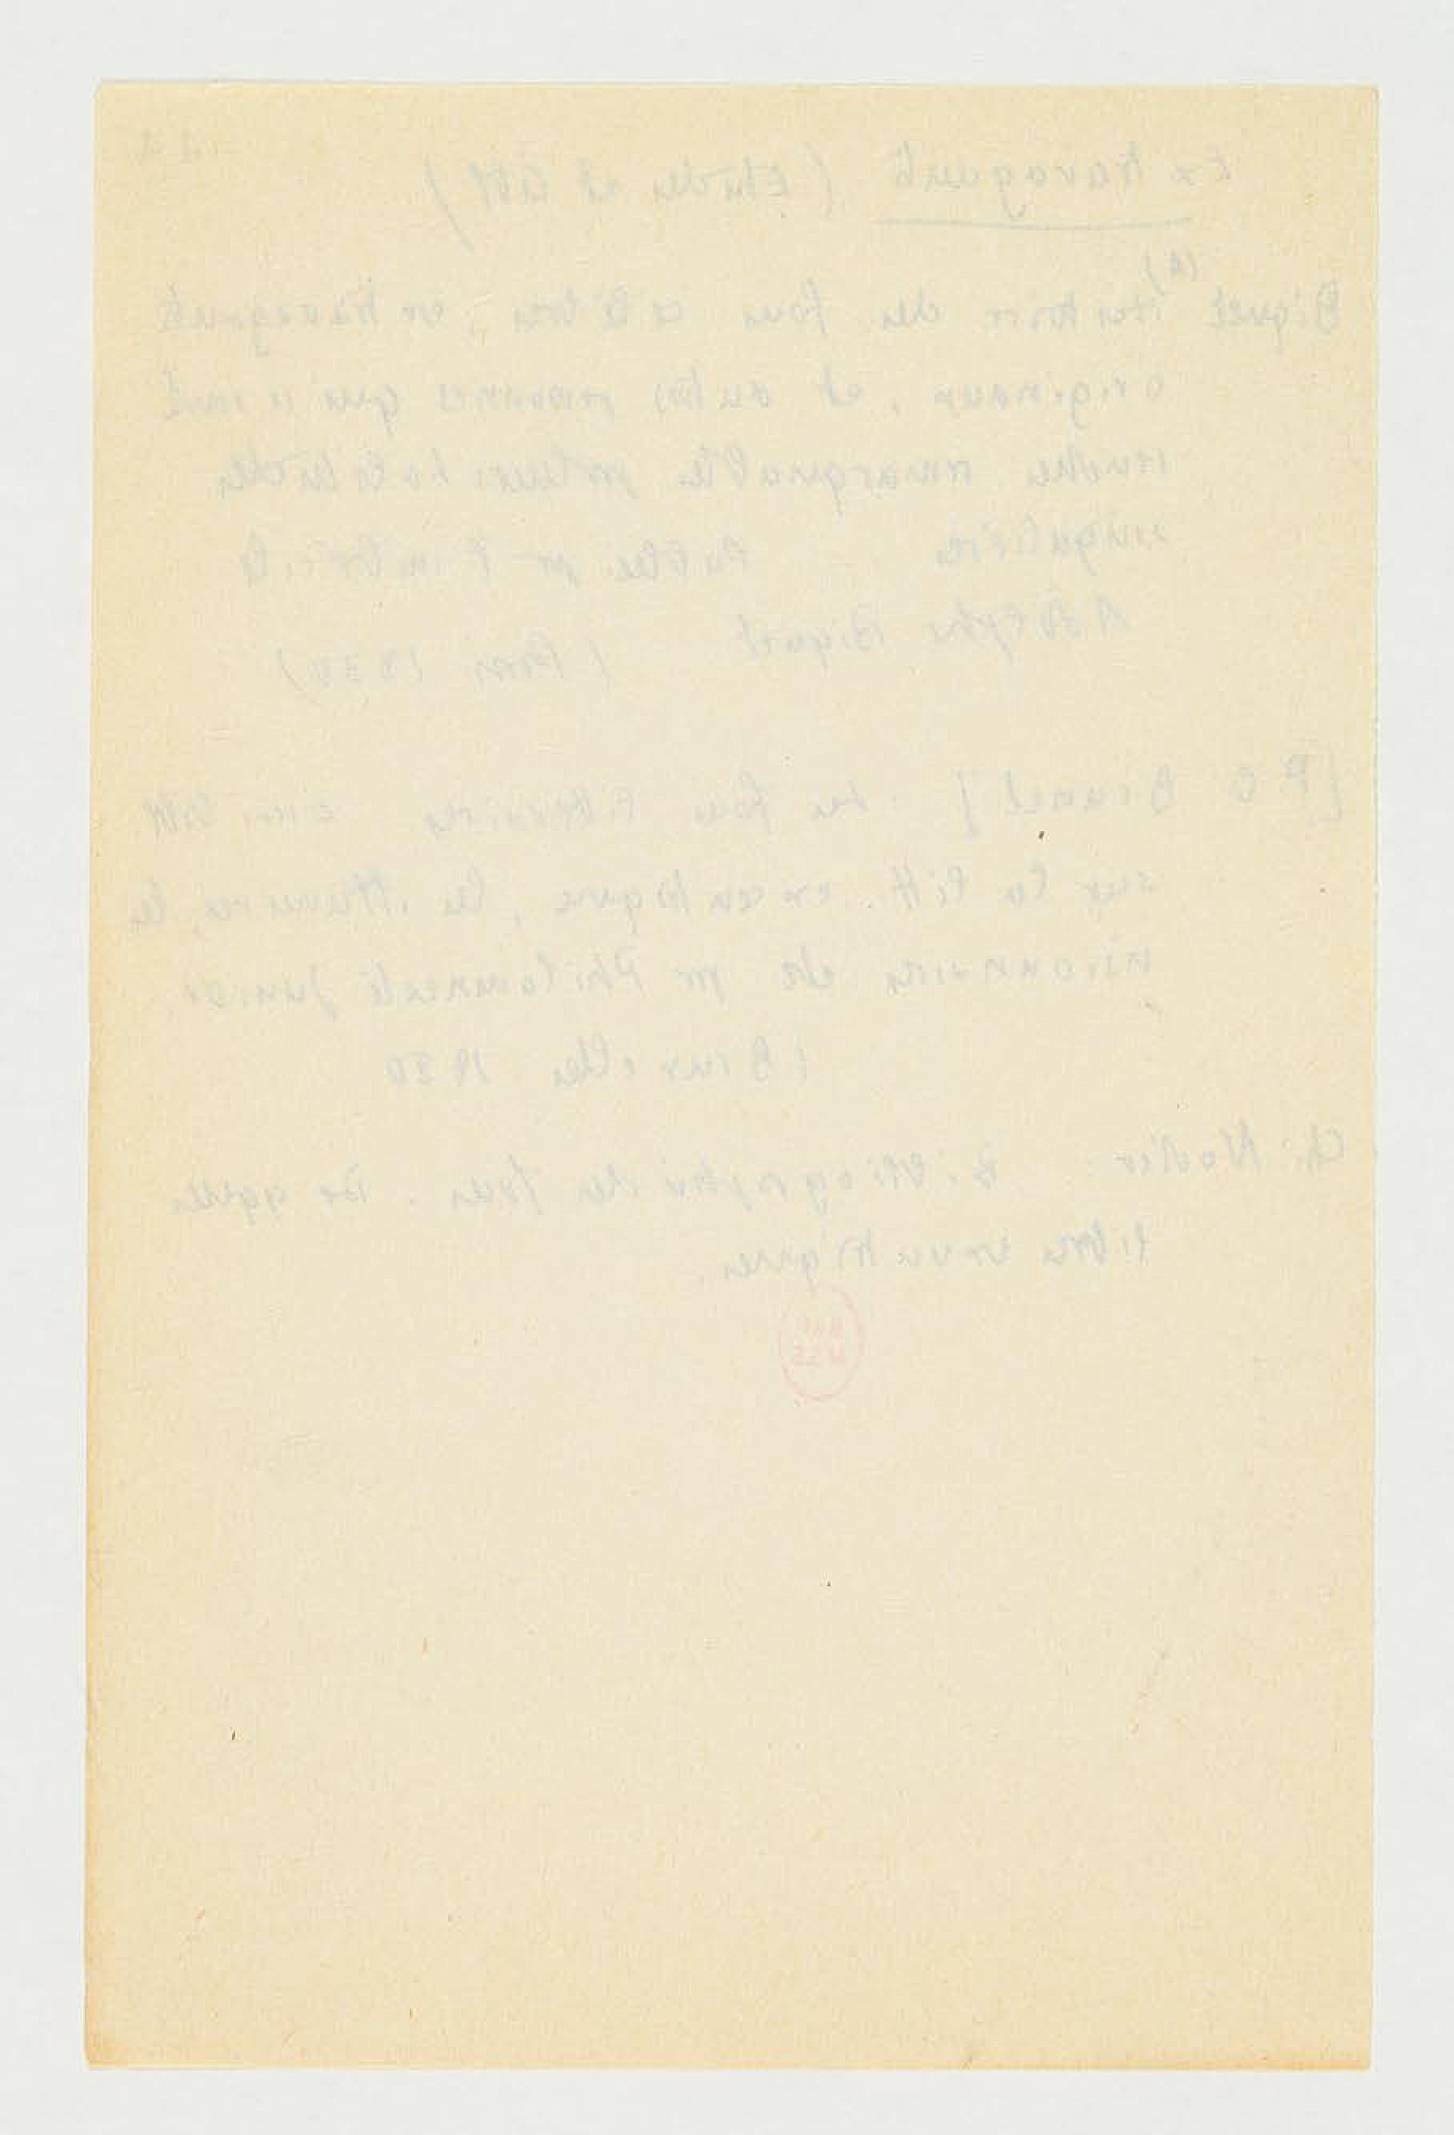 Extravagants (Études et litt)
(A)
Biquet Histoire des fous célèbres, extravagants
originaux, et autres personnes qui se sont
rendues remarquables par leurs habitudes
singulières Publié par
Adolphe Biquet (Paris 1830)
[P G Brunet] Les fous littéraires
sur la litt. excentrique, les illuminés, les
visionnaires etc par Philomneste Junior
(Bruxelles 1880
Ch. Nodier Bibliographie des fous. De quelques
livres excentriques.